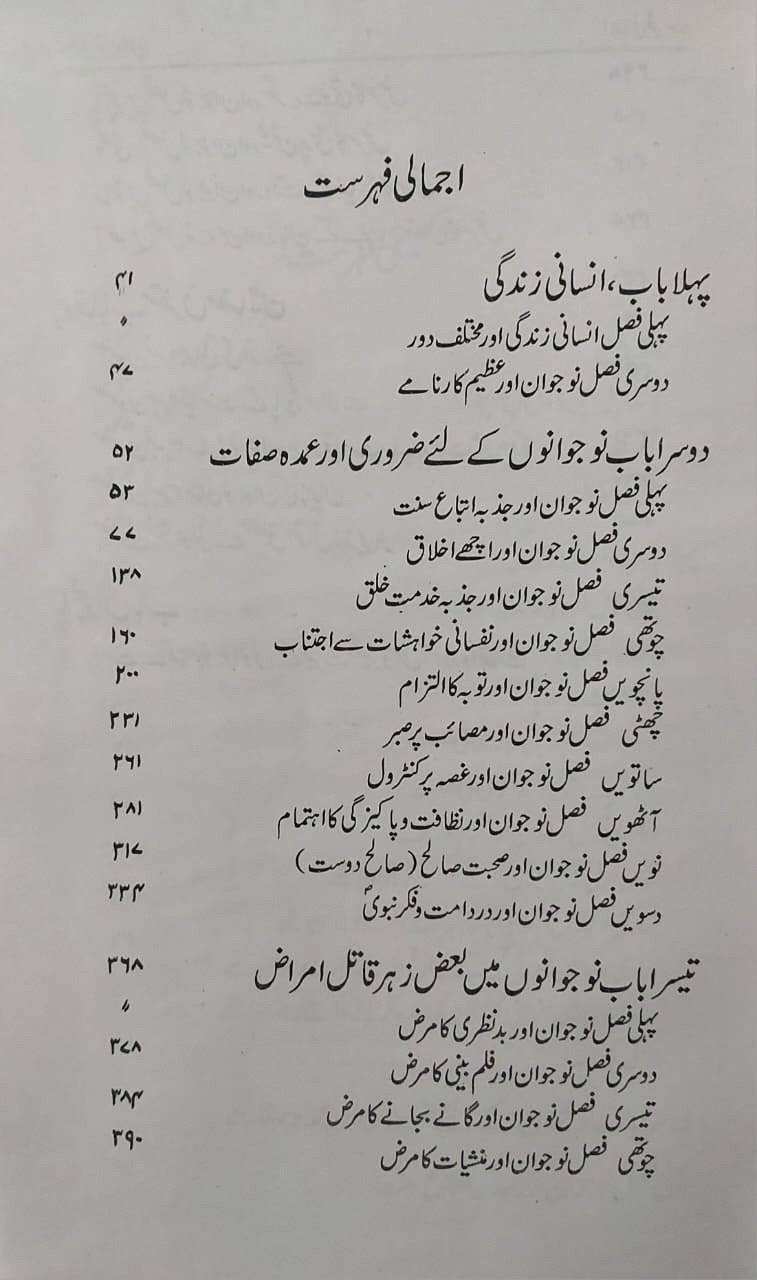 اجمالی فہرست
پہلا باب، انسانی زندگی ۴۱
پہلی فصل انسانی زندگی اور مختلف دور ″
دوسری فصل نوجوان اور عظیم کارنامے ۴۷
دوسرا باب نوجوانوں کے لئے ضروری اور عمدہ صفات ۵۲
پہلی فصل نوجوان اور جذبہ اتباع سنت ۵۳
دوسری فصل نوجوان اور اچھے اخلاق ۷۷
تیسری فصل نوجوان اور جذبہ خدمت خلق ۱۳۸
چوتھی فصل نوجوان اور نفسانی خواہشات سے اجتناب ۱۶۰
پانچویں فصل نوجوان اور توبہ کا التزام ۲۰۰
چھٹی فصل نوجوان اور مصائب پر صبر ۲۳۱
ساتویں فصل نوجوان اور غصہ پر کنٹرول ۲۶۱
آٹھویں فصل نوجوان اور نظافت و پاکیزگی کا اہتمام ۲۸۱
نویں فصل نوجوان اور صحبت صالح (صالح دوست) ۳۱۷
دسویں فصل نوجوان اور درد امت و فکر نبویؐ ۳۳۴
تیسرا باب نوجوانوں میں بعض زہر قاتل امراض ۳۶۸
پہلی فصل نوجوان اور بدنظری کا مرض ″
دوسری فصل نوجوان اور فلم بینی کا مرض ۳۷۸
تیسری فصل نوجوان اور گانے بجانے کا مرض ۳۸۴
چوتھی فصل نوجوان اور منشیات کا مرض ۳۹۰